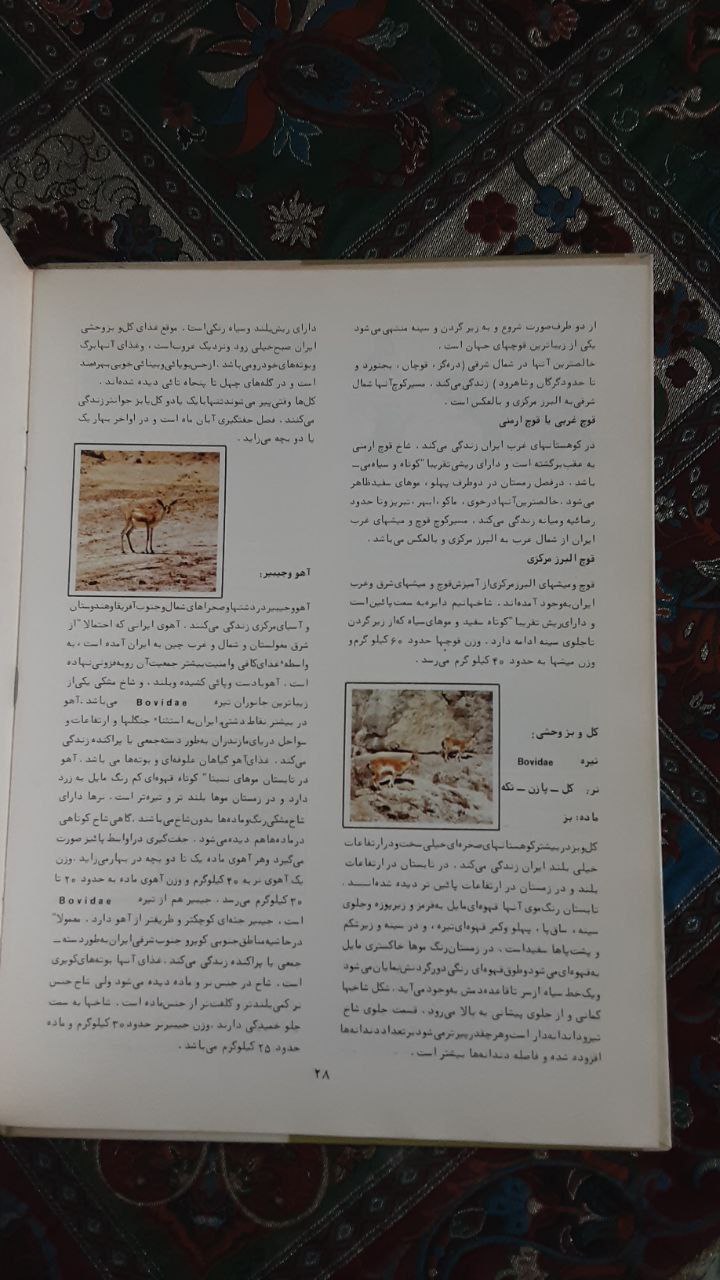 از دو طرف‌صورت شروع و به زیر گردن و سینه منتهی می‌شود
یکی از زیباترین قوچهای جهان است .
خالصترین آنها در شمال شرقی (دره‌گز ، قوچان ، بجنورد و
تا حدودگرگان وشاهرود) زندگی‌می‌کند . مسیرکوچ‌آنهاشمال
شرقی‌به البرز مرکزی و بالعکس است .
قوچ غربی یا قوچ ارمنی
در کوهستانهای غرب ایران زندگی می‌کند . شاخ قوچ ارمنی
به عقب‌برگشته است و دارای ریشی تقریبا" کوتاه و سیاه‌می‌ــ
باشد . درفصل زمستان در دوطرف پهلو ، موهای سفیدظاهر
می‌شود . خالصترین آنهادرخوی ، ماکو ، ابهر ، تبریزوتا حدود
رضائیه ومیانه زندگی می‌کند . مسیرکوچ قوچ و میشهای غرب
ایران از شمال غرب به البرز مرکزی و بالعکس می‌باشد .
قوچ البرز مرکزی
قوچ ومیشهای البرزمرکزی‌از آمیزش‌قوچ و میشهای‌شرق وغرب
ایران‌به‌وجود آمده‌اند . شاخهانیم دایره‌به سمت‌پائین‌است
و دارای‌ریش تقریبا" کوتاه سفید و موهای‌سیاه که‌از زیر گردن
تاجلوی سینه ادامه دارد . وزن قوچها حدود ۶۰ کیلو گرم‌و
وزن میشها به حدود ۴۰ کیلو گرم می‌رسد .
کل و بز وحشی:
تیره Bovidae
نر: کل ــ پازن ــ تکه
ماده: بز
کل‌وبزدر بیشترکوهستانهای‌صخره‌ای خیلی سخت‌ودرارتفاعات
خیلی بلند ایران زندگی می‌کند . در تابستان در ارتفاعات
بلند و در زمستان در ارتفاعات پائین تر دیده شده‌انــد .
تابستان رنگ‌موی آنها قهوه‌ای‌مایل به‌قرمز و زیرپوزه وجلوی
سینه ، ساق‌پا ، پهلو وکمر قهوه‌ای‌تیره ، و در سینه و زیرشکم
و پشت‌پاها سفیداست . در زمستان‌رنگ موها خاکستری مایل
به‌قهوه‌ای‌می‌شودوطوق‌قهوه‌ای رنگی دورگردنش‌نمایان‌می‌شود
ویک‌خط سیاه ازسر تاقاعده‌دمش به‌وجودمی‌آید . شکل شاخها
کمانی و از جلوی پیشانی به بالا می‌رود . قسمت جلوی شاخ
تیزودندانه‌داراست‌وهرچقدرپیرترمی‌شودبرتعداددندانه‌ها
افزوده شده و فاصله دندانه‌ها بیشتر است .
دارای ریش‌بلند وسیاه رنگی‌است . موقع غذای کل‌و بزوحشی
ایران صبح‌خیلی زود ونزدیک غروب‌است ، وغذای آنهابرگ
و بوته‌های‌خودرومی‌باشد . ازحس‌بویائی‌وبینائی‌خوبی‌بهره‌مند
است و در گله‌های چهل تا پنجاه تائی دیده شده‌اند .
کل‌ها وقتی‌پیر می‌شوندتنهایابا یک یادو کل‌یابز جوانترزندگی
می‌کنند . فصل جفتگیری آبان ماه است و در اواخر بهار یک
یا دو بچه می‌زاید .
آهو وجیبیر:
آهووجیبیردردشتهاوصحراهای شمال‌وجنوب‌آفریقاوهندوستان
و آسیای‌مرکزی زندگی می‌کنند . آهوی ایرانی که احتمالا "از
شرق مغولستان و شمال و غرب چین به ایران آمده است ، به
واسطه‌غذای‌کافی وامنیت‌بیشتر جمعیت‌آن روبه‌فزونی‌نهاده
است . آهوبادست وپائی کشیده وبلند ، و شاخ مشکی یکی‌از
زیباترین جانوران تیره Bovidae می‌باشد .آهو
در بیشتر نقاط دشتی‌ایران‌به استثناء جنگلها و ارتفاعات و
سواحل دریای‌مازندران به‌طور دسته‌جمعی یا پراکنده زندگی
می‌کند . غذای‌آهو گیاهان علوفه‌ای و بوته‌ها می باشد . آهو
در تابستان موهای نسبتا" کوتاه قهوه‌ای کم رنگ مایل به زرد
دارد و در زمستان موها بلند تر و تیره‌تر است . نرها دارای
شاخ‌مشکی‌رنگ‌وماده‌ها بدون‌شاخ‌می‌باشند .گاهی شاخ کوتاهی
درماده‌هاهم دیده‌می‌شود . جفت‌گیری دراواسط پائیز صورت
می‌گیرد وهر آهوی ماده یک تا دو بچه در بهارمی‌زاید .وزن
یک آهوی نر به ۴۰ کیلوگرم و وزن آهوی ماده به حدود ۲۰ تا
۳۰ کیلوگرم می رسد . جیبیر هم از تیره Bovidae
است ، جیبیر جثه‌ای کوچکتر و ظریفتر از آهو دارد . معمولا"
درحاشیه‌مناطق‌جنوبی کویرو جنوب‌شرقی‌ایران‌به‌طوردسته ــ
جمعی یا پراکنده زندگی می‌کند .غذای آنها بوته‌های‌کویری
است . شاخ در جنس نر و ماده دیده می‌شود ولی شاخ جنس
نر کمی‌بلندتر و کلفت‌تر از جنس‌ماده است . شاخها به سمت
جلو خمیدگی دارند .وزن جیبیرنر حدود۳۰ کیلوگرم و ماده
حدود ۲۵ کیلوگرم می‌باشد .
۲۸